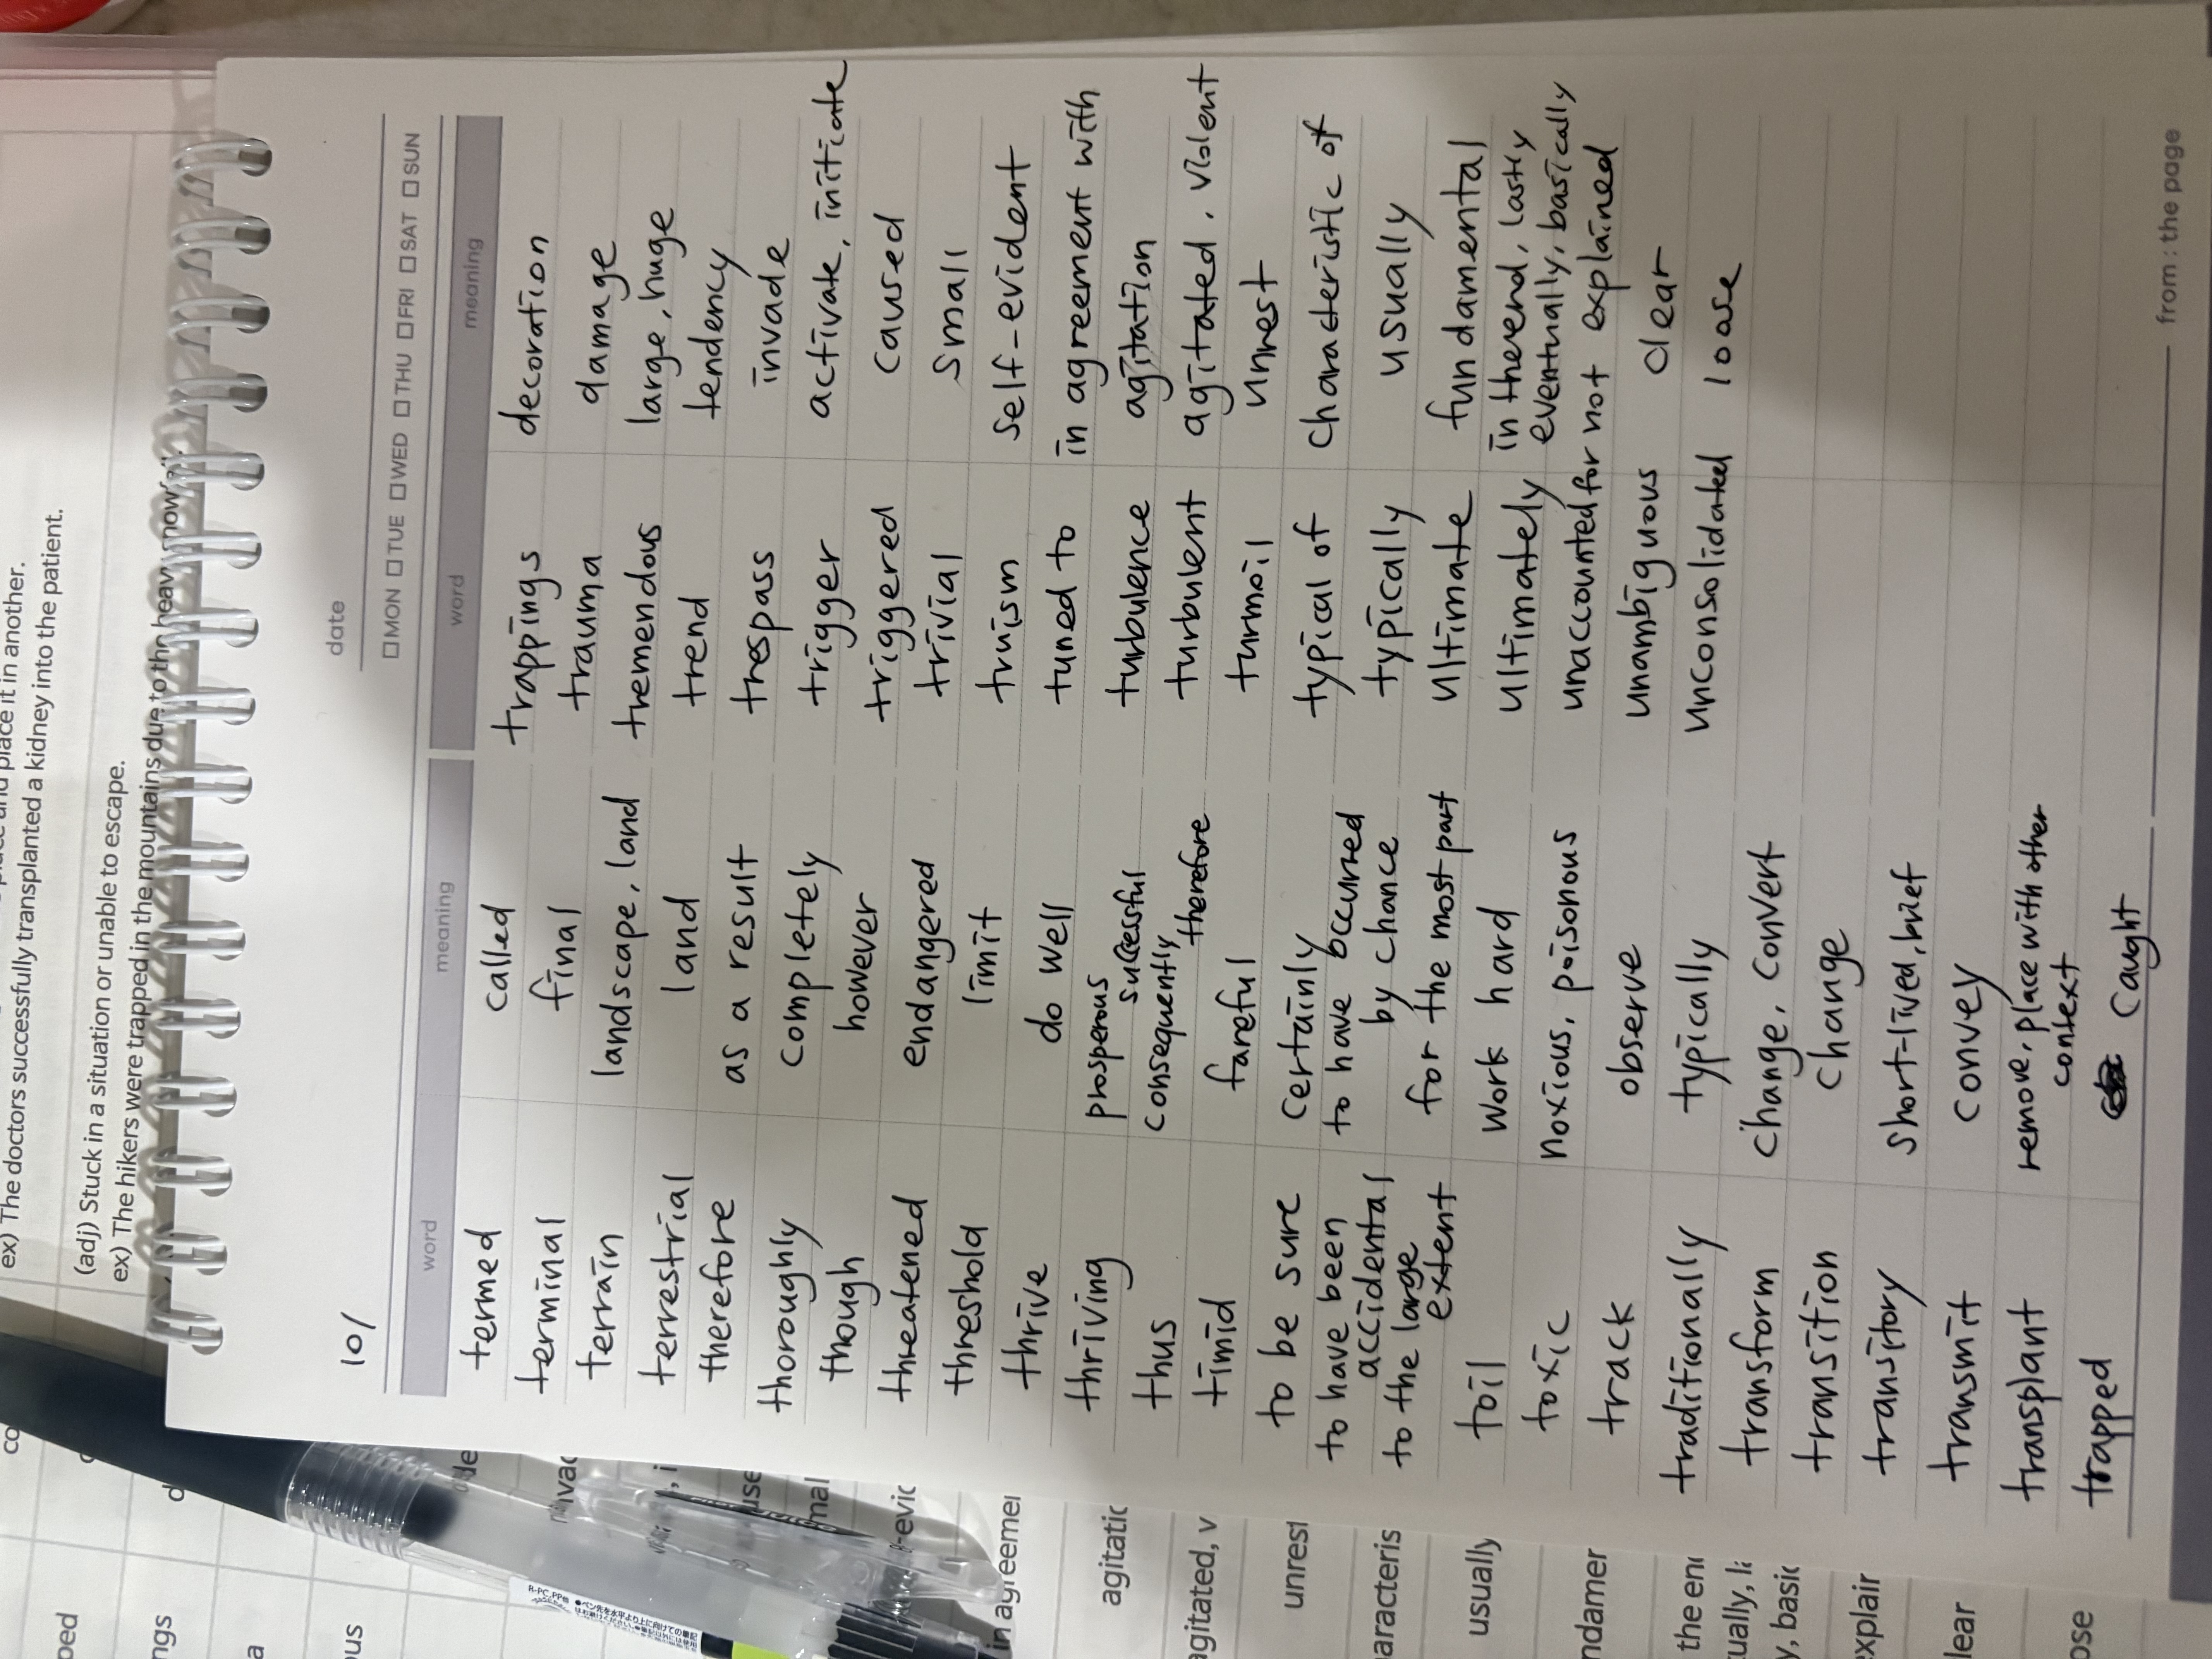 place it in another.
ex) The doctors successfully transplanted a kidney into the patient.
(adj) Stuck in a situation or unable to escape.
ex) The hikers were trapped in the mountains due to the heavy snow
10/
date
MON TUE WED THU FRI SAT SUN
word meaning word meaning
termed called
terminal final
terrain landscape, land
terrestrial land
therefore as a result
thoroughly completely
though however
threatened endangered
threshold limit
thrive do well
thriving prosperous successful
thus consequently, therefore
timid fareful
to be sure certainly
to have been accidental to have occurred by chance
to the large extent for the most part
toil work hard
toxic noxious, poisonous
track observe
traditionally typically
transform change, convert
transition change
transitory short-lived, brief
transmit convey
transplant remove, place with other context
trapped caught
trappings decoration
trauma damage
tremendous large, huge
trend tendency
trespass invade
trigger activate, initiate
triggered caused
trivial small
truism self-evident
tuned to in agreement with
turbulence agitation
turbulent agitated, violent
turmoil unrest
typical of characteristic of
typically usually
ultimate fundamental
ultimately in the end, lastly
eventually, basically
unaccounted for not explained
unambiguous clear
unconsolidated loose
from : the page
in agreemen
agitatic
agitated, v
unrest
aracteris
usually
ndamer
the en
tually, l
y, basic
explair
lear
ose